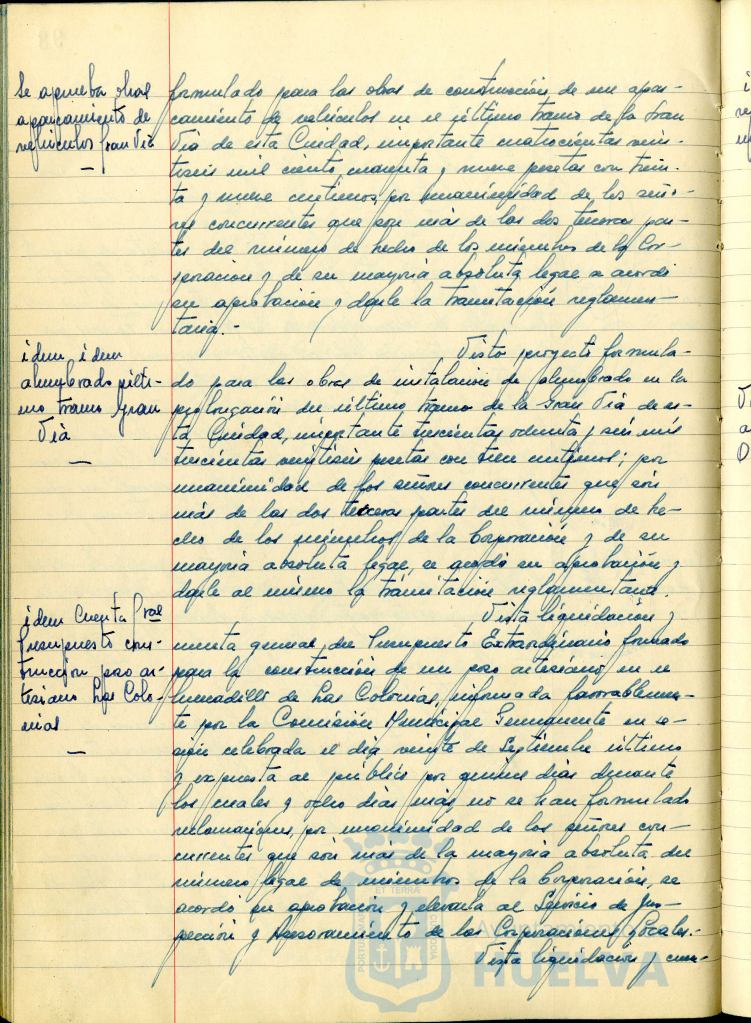 Se aprueba obras
aparcamiento de
vehiculos Gran Via
—
formulado para las obras de construcción de un apar-
camiento de vehículos en el último tramo de la Gran
Vía de esta Ciudad, importante cuatrocientas vein-
tiseis mil ciento cuarenta y nueve pesetas con trein-
ta y nueve centimos, por unanimidad de los seño-
res concurrentes que son más de las dos terceras par-
tes del número de hecho de los miembros de la Cor-
poración y de su mayoría absoluta legal se acordó
su aprobación y darle la tramitación reglamen-
taria.-
idem idem
alumbrado últi-
mo tramo Gran
Via
—
Visto proyecto formula-
do para las obras de instalación de alumbrado en la
prolongación del último tramo de la Gran Vía de es-
ta Ciudad, importante trescientas ochenta y seis mil
trescientas veintiseis pesetas con centimos; por
unanimidad de los señores concurrentes que son
más de las dos terceras partes del número de he-
cho de los miembros de la Corporación y de su
mayoría absoluta legal, se acordó su aprobación y
darle al mismo la tramitación reglamentaria.
idem Cuenta Gral
Presupuesto cons-
trucción pozo ar-
tesiano Las Colo-
nias
—
Vista liquidación y
cuenta general del Presupuesto Extraordinario formado
para la construcción de un pozo artesiano en el
humadillo de Las Colonias, informada favorablemen-
te por la Comisión Municipal Permanente en se-
sión celebrada el día veinte de Septiembre último
y expuesta al público por quince días durante
los cuales y ocho días más no se han formulado
reclamaciones, por unanimidad de los señores con-
currentes que son más de la mayoría absoluta del
número legal de miembros de la Corporación, se
acordó su aprobación y elevarla al Servicio de Ins-
pección y Asesoramiento de las Corporaciones Locales.-
Vista liquidación y cuen-
HUELVA